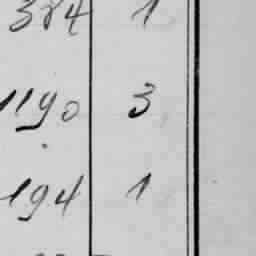 384 1
1190 3
194 1